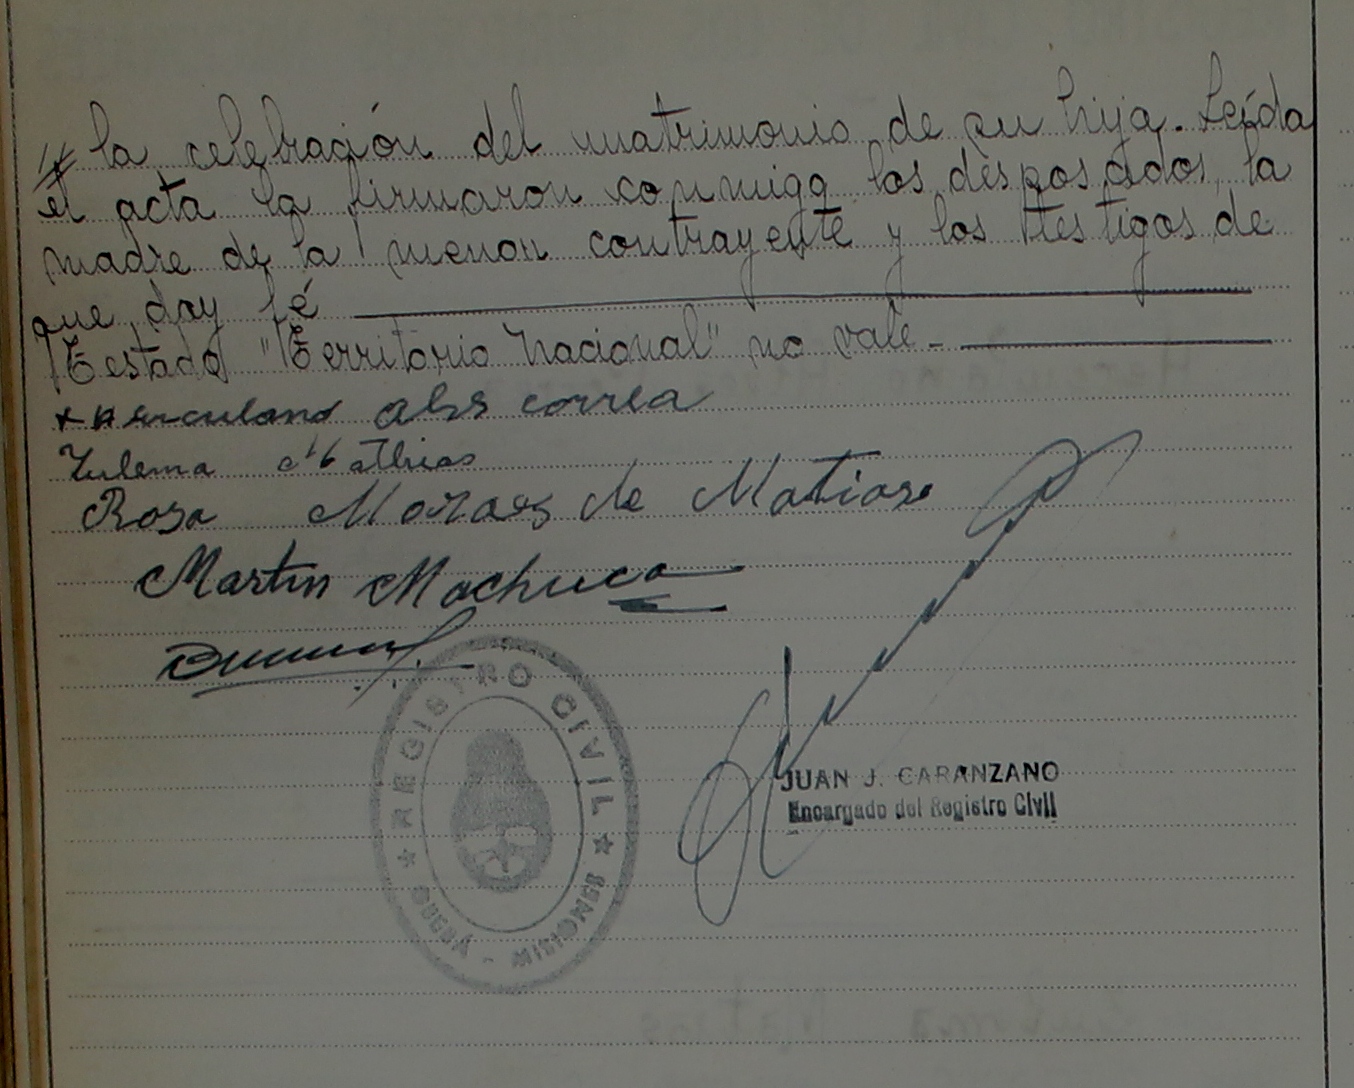 // la celebración del matrimonio de su hija. Leída
el acta la firmaron conmigo los desposados, la
madre de la menor contrayente y los testigos de
que doy fé
Testado "Territorio Nacional" no vale -
Herculano Alves Correa
Zulema Mathias
Rosa Moraes de Matias
Martin Machuca
REGISTRO CIVIL
JUAN J. CARANZANO
Encargado del Registro Civil
MISIONES